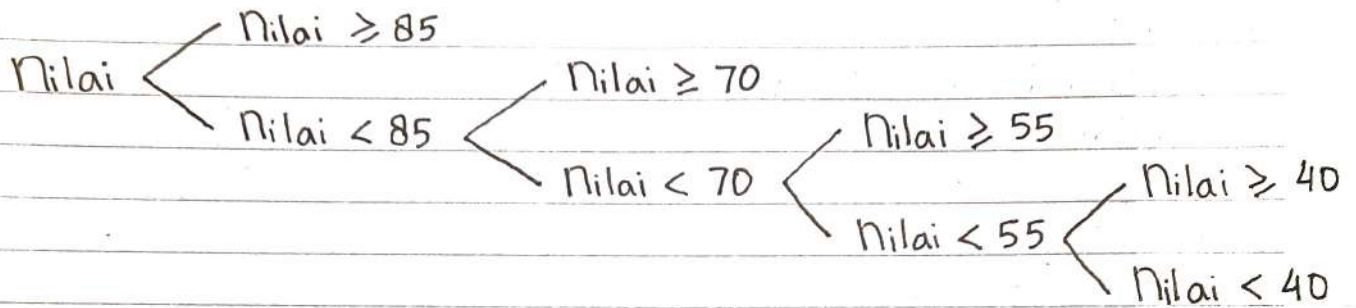 Nilai ≥ 85
Nilai
Nilai < 85
Nilai ≥ 70
Nilai < 70
Nilai ≥ 55
Nilai < 55
Nilai ≥ 40
Nilai < 40